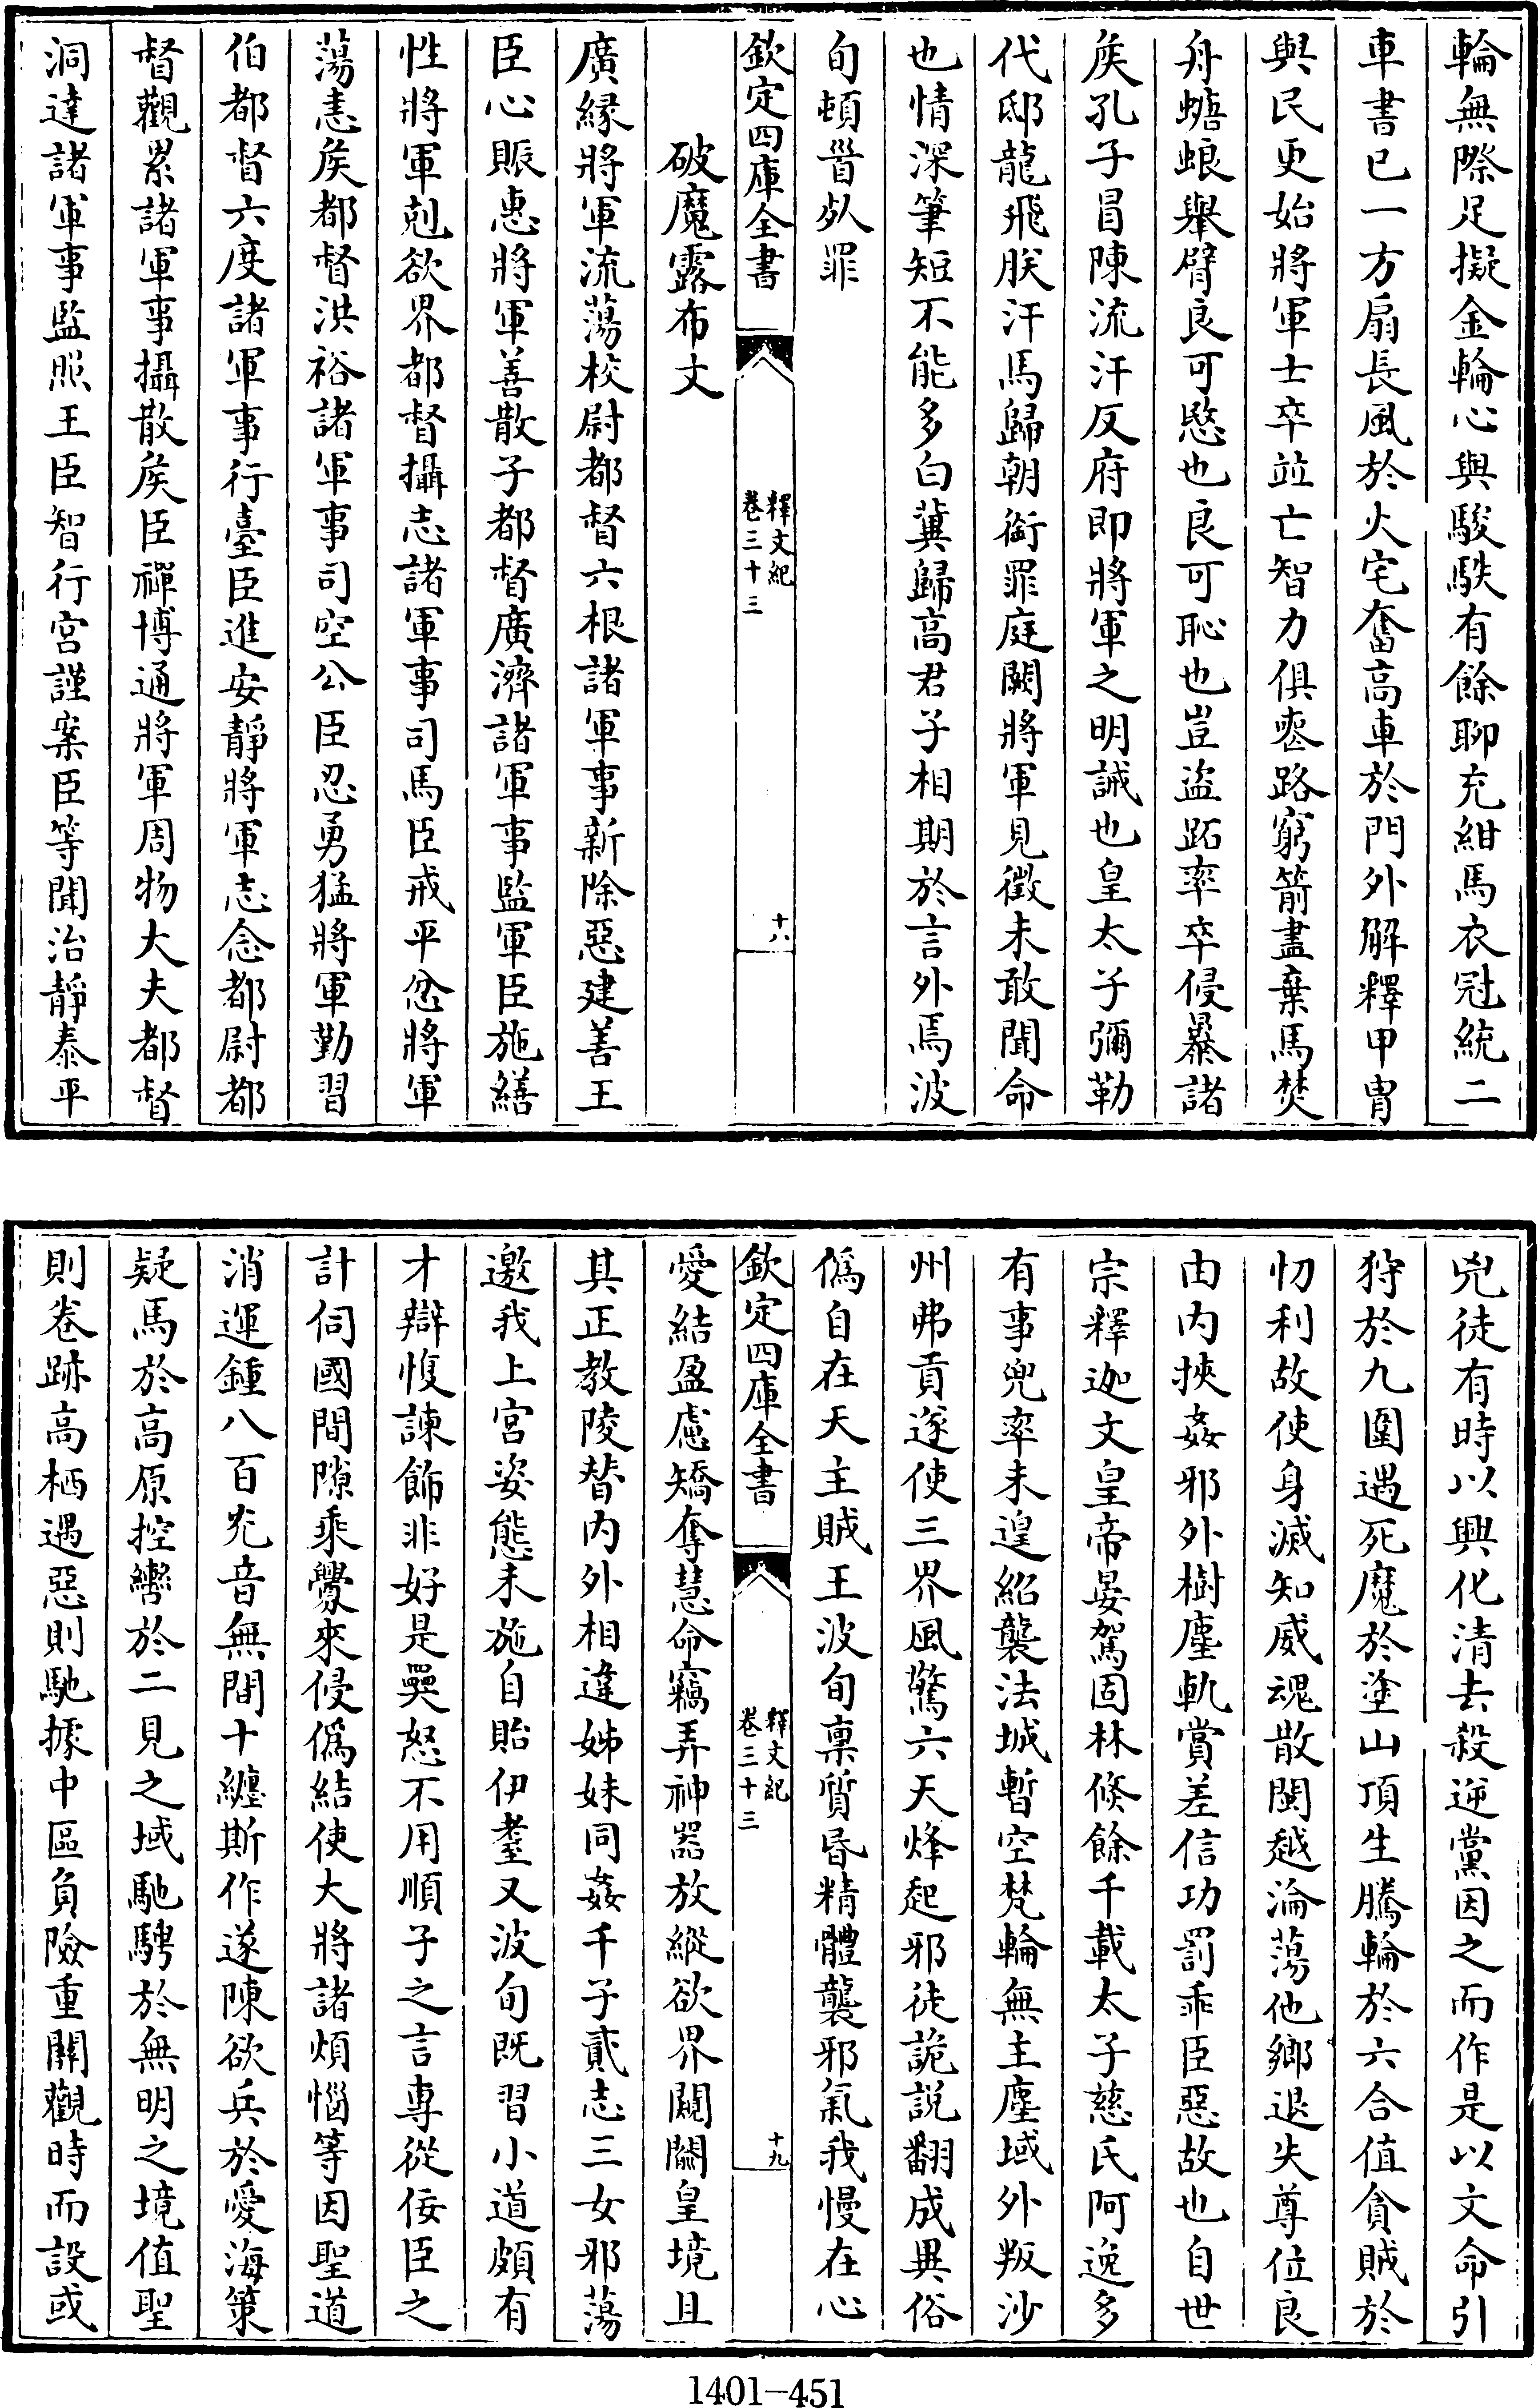 輪無際足擬金輪心與駿駃有餘聊充紺馬衣冠統二
車書已一方扇長風於火宅奮高車於門外解釋甲胄
與民更始將軍士卒並亡智力俱喪路窮箭盡棄馬焚
舟螗蜋舉臂良可愍也良可恥也豈盜跖率卒侵暴諸
侯孔子冒陳流汗反府即將軍之明誡也皇太子彌勒
代邸龍飛朕汗馬歸朝銜罪庭闕將軍見徵未敢聞命
也情深筆短不能多白冀歸高君子相期於言外焉波
旬頓首死罪
欽定四庫全書
釋文紀
卷三十三
十八
破魔露布文
廣緣將軍流蕩校尉都督六根諸軍事新除惡建善王
臣心賑惠將軍善散子都督廣濟諸軍事監軍臣施繕
性將軍剋欲界都督攝志諸軍事司馬臣戒平忿將軍
蕩恚侯都督洪裕諸軍事司空公臣忍勇猛將軍勤習
伯都督六度諸軍事行臺臣進安靜將軍志念都尉都
督觀累諸軍事攝散侯臣禪博通將軍周物大夫都督
洞達諸軍事監照王臣智行宮謹案臣等聞治靜泰平
兇徒有時以興化清去殺逆黨因之而作是以文命引
狩於九圍遇死魔於塗山頂生騰輪於六合值貪賊於
忉利故使身滅知威魂散閩越淪蕩他鄉退失尊位良
由内挾姦邪外樹塵軌賞差信功罰乖臣惡故也自世
宗釋迦文皇帝晏駕固林倏餘千載太子慈氏阿逸多
有事兜率未遑紹襲法城暫空梵輪無主塵域外叛沙
州弗貢遂使三界風驚六天烽起邪徒詭説翻成異俗
僞自在天主賊王波旬禀質昏精體襲邪氣我慢在心
欽定四庫全書
釋文紀
卷三十三
十九
愛結盈慮矯奪慧命竊弄神器放縱欲界闚闞皇境且
其正教陵替内外相違姊妹同姦千子貳志三女邪蕩
邀我上宮姿態未施自貽伊耋又波旬既習小道頗有
才辯愎諫飾非好是㚔怒不用順子之言專從佞臣之
計伺國間隙乘釁來侵僞結使大將諸煩惱等因聖道
消運鍾八百灮音無間十纏斯作遂陳欲兵於愛海策
疑馬於高原控轡於二見之域馳騁於無明之境值聖
則卷跡高栖遇惡則馳據中區負險重關觀時而設或
1401-451